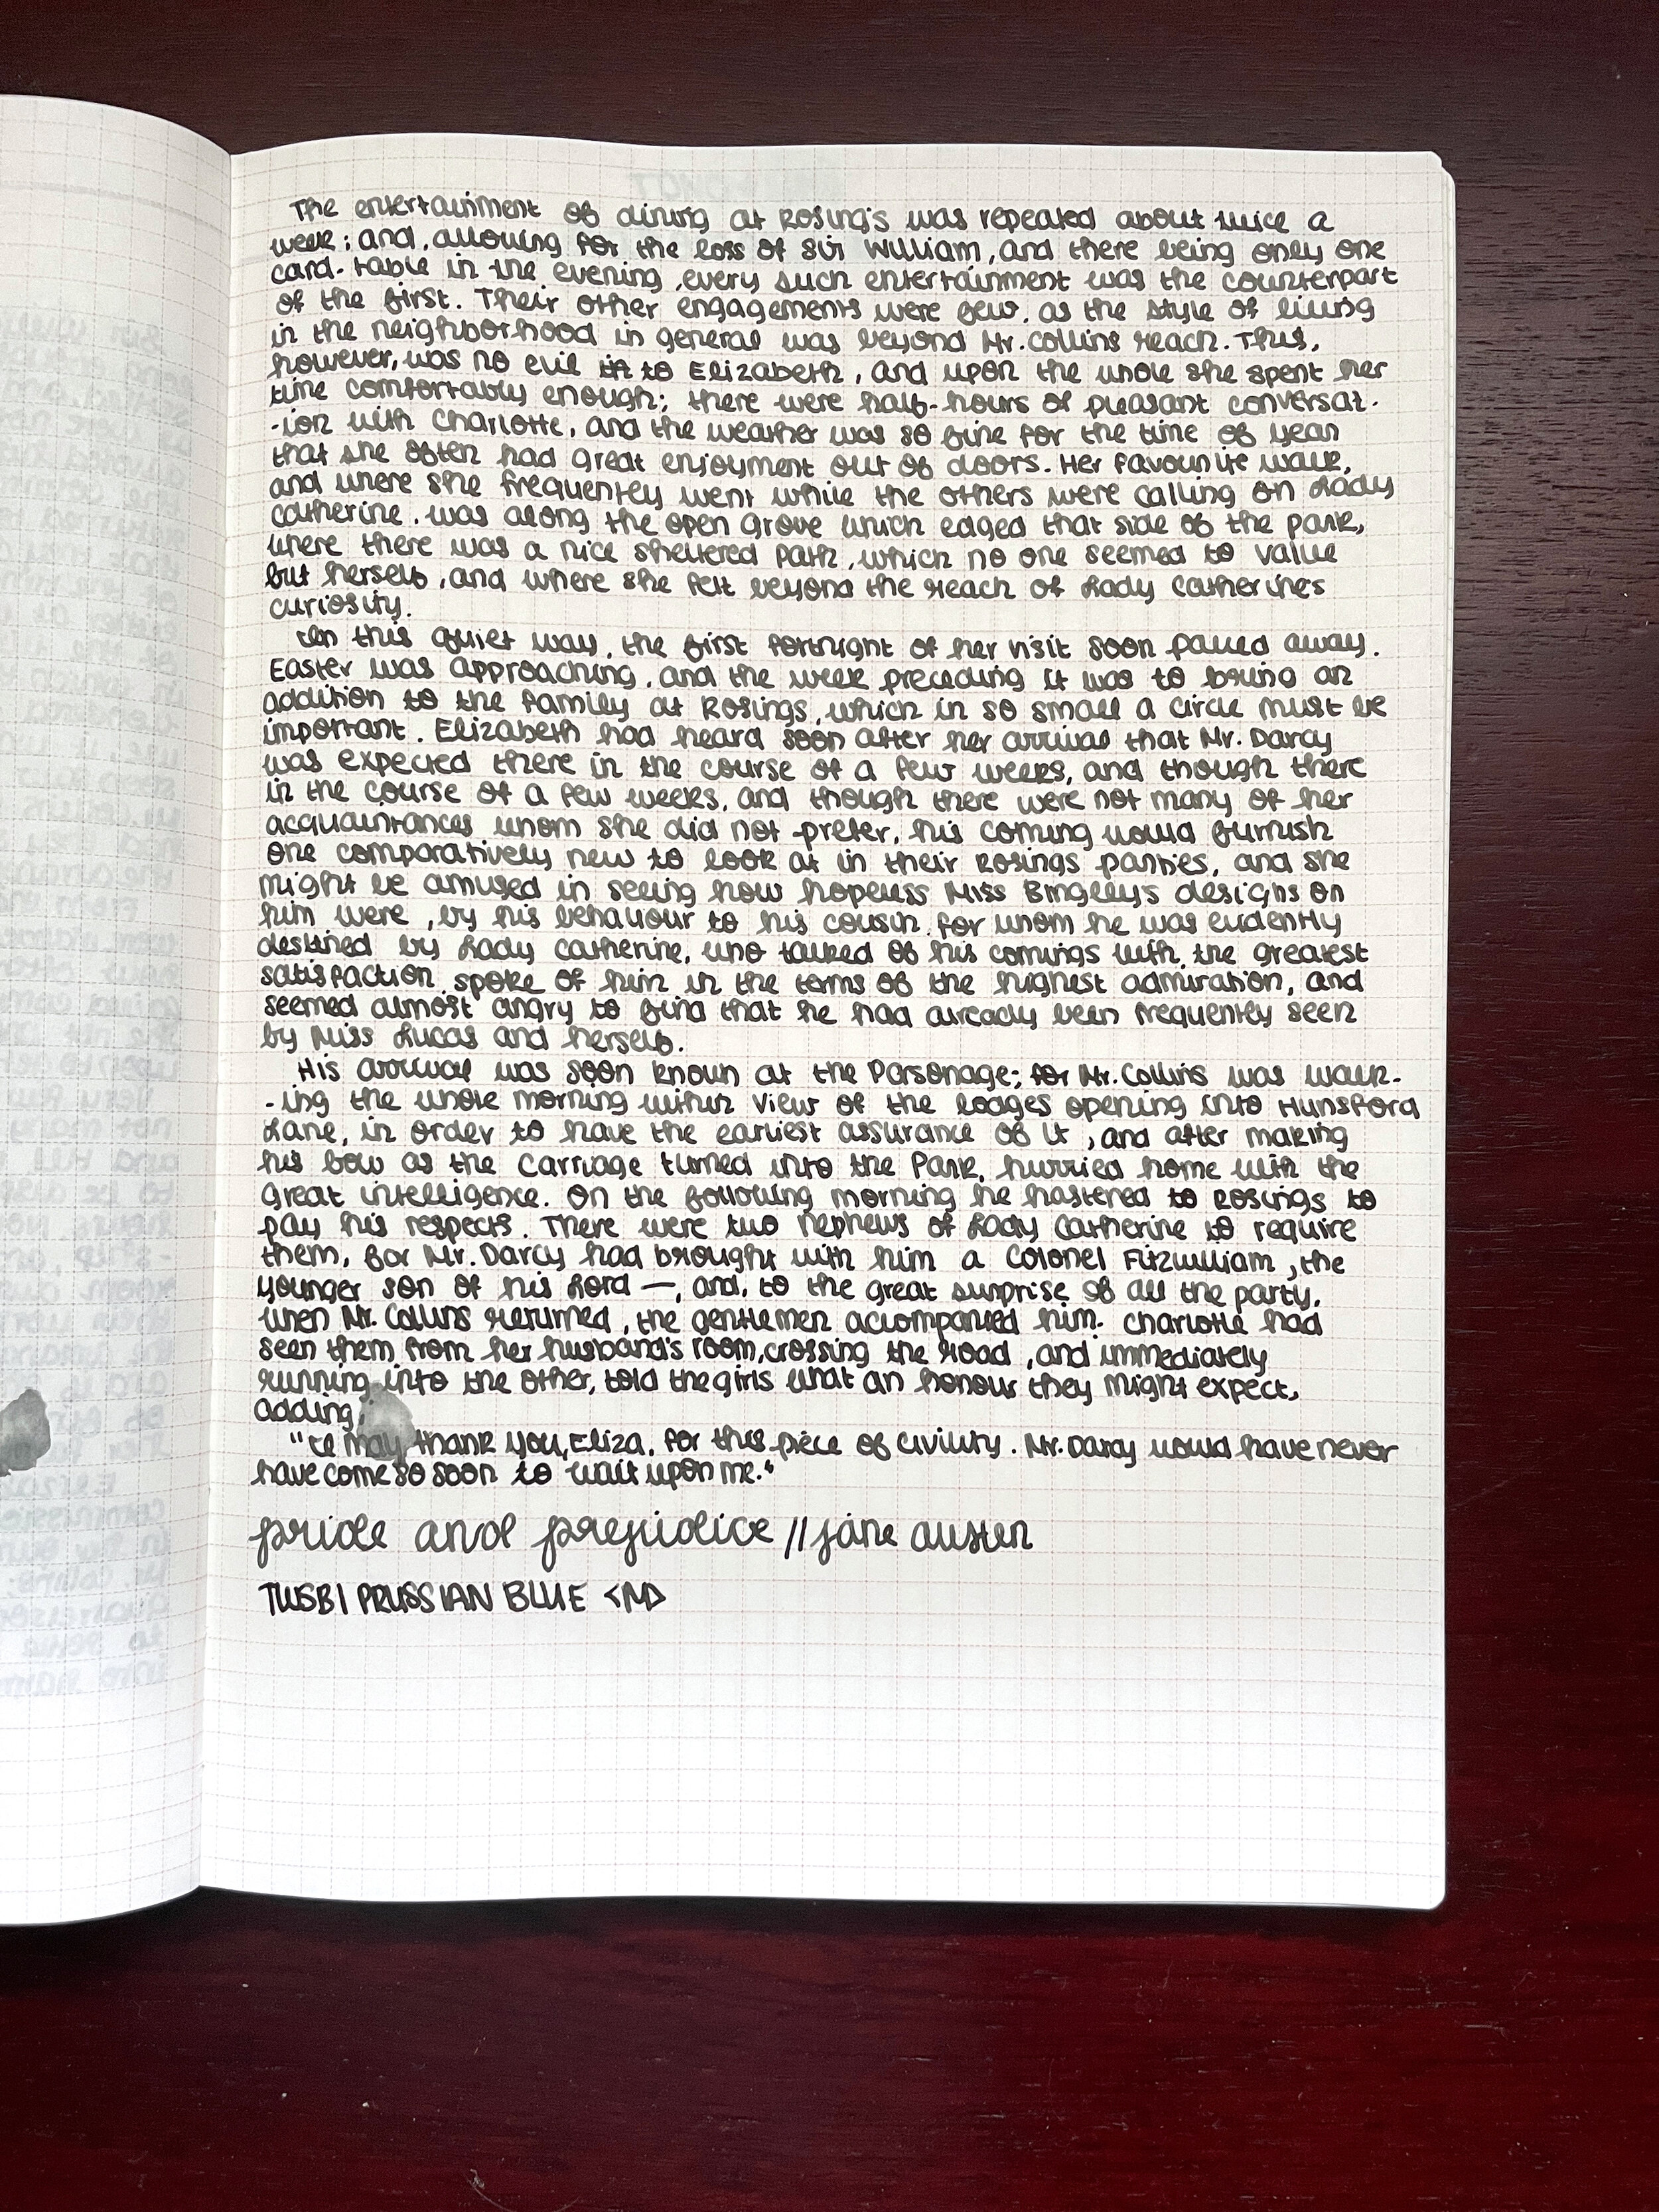 The entertainment of dining at Rosing's was repeated about twice a
week; and, allowing for the loss of Sir William, and there being only one
card-table in the evening, every such entertainment was the counterpart
of the first. Their other engagements were few, as the style of living
in the neighborhood in general was beyond Mr. Collins reach. This,
however, was no evil to Elizabeth, and upon the whole she spent her
time comfortably enough; there were half-hours of pleasant conversat-
-ion with Charlotte, and the weather was so fine for the time of year
that she often had great enjoyment out of doors. Her favourite walk,
and where she frequently went while the others were calling on Lady
Catherine, was along the open grove which edged that side of the park,
where there was a nice sheltered path, which no one seemed to value
but herself, and where she felt beyond the reach of Lady Catherine's
curiosity.
In this quiet way, the first fortnight of her visit soon passed away.
Easter was approaching, and the week preceding it was to bring an
addition to the family at Rosings, which in so small a circle must be
important. Elizabeth had heard soon after her arrival that Mr. Darcy
was expected there in the course of a few weeks, and though there
in the course of a few weeks, and though there were not many of her
acquaintances whom she did not prefer, his coming would furnish
one comparatively new to look at in their Rosings parties, and she
might be amused in seeing how hopeless Miss Bingley's designs on
him were, by his behaviour to his cousin, for whom he was evidently
destined by Lady Catherine, who talked of his comings with the greatest
satisfaction, spoke of him in the terms of the highest admiration, and
seemed almost angry to find that he had already been frequently seen
by Miss Lucas and herself.
His arrival was soon known at the Parsonage; for Mr. Collins was walk-
-ing the whole morning within view of the lodges opening into Hunsford
Lane, in order to have the earliest assurance of it, and after making
his bow as the carriage turned into the Park, hurried home with the
great intelligence. On the following morning he hastened to Rosings to
pay his respects. There were two nephews of Lady Catherine to require
them, for Mr. Darcy had brought with him a Colonel Fitzwilliam, the
younger son of his Lord —, and, to the great surprise of all the party,
when Mr. Collins returned, the gentlemen accompanied him. Charlotte had
seen them from her husband's room, crossing the road, and immediately
running into the other, told the girls what an honour they might expect,
adding,
"I may thank you, Eliza, for this piece of civility. Mr. Darcy would have never
have come so soon to wait upon me."
pride and prejudice // jane austen
TWSBI PRUSSIAN BLUE <M>